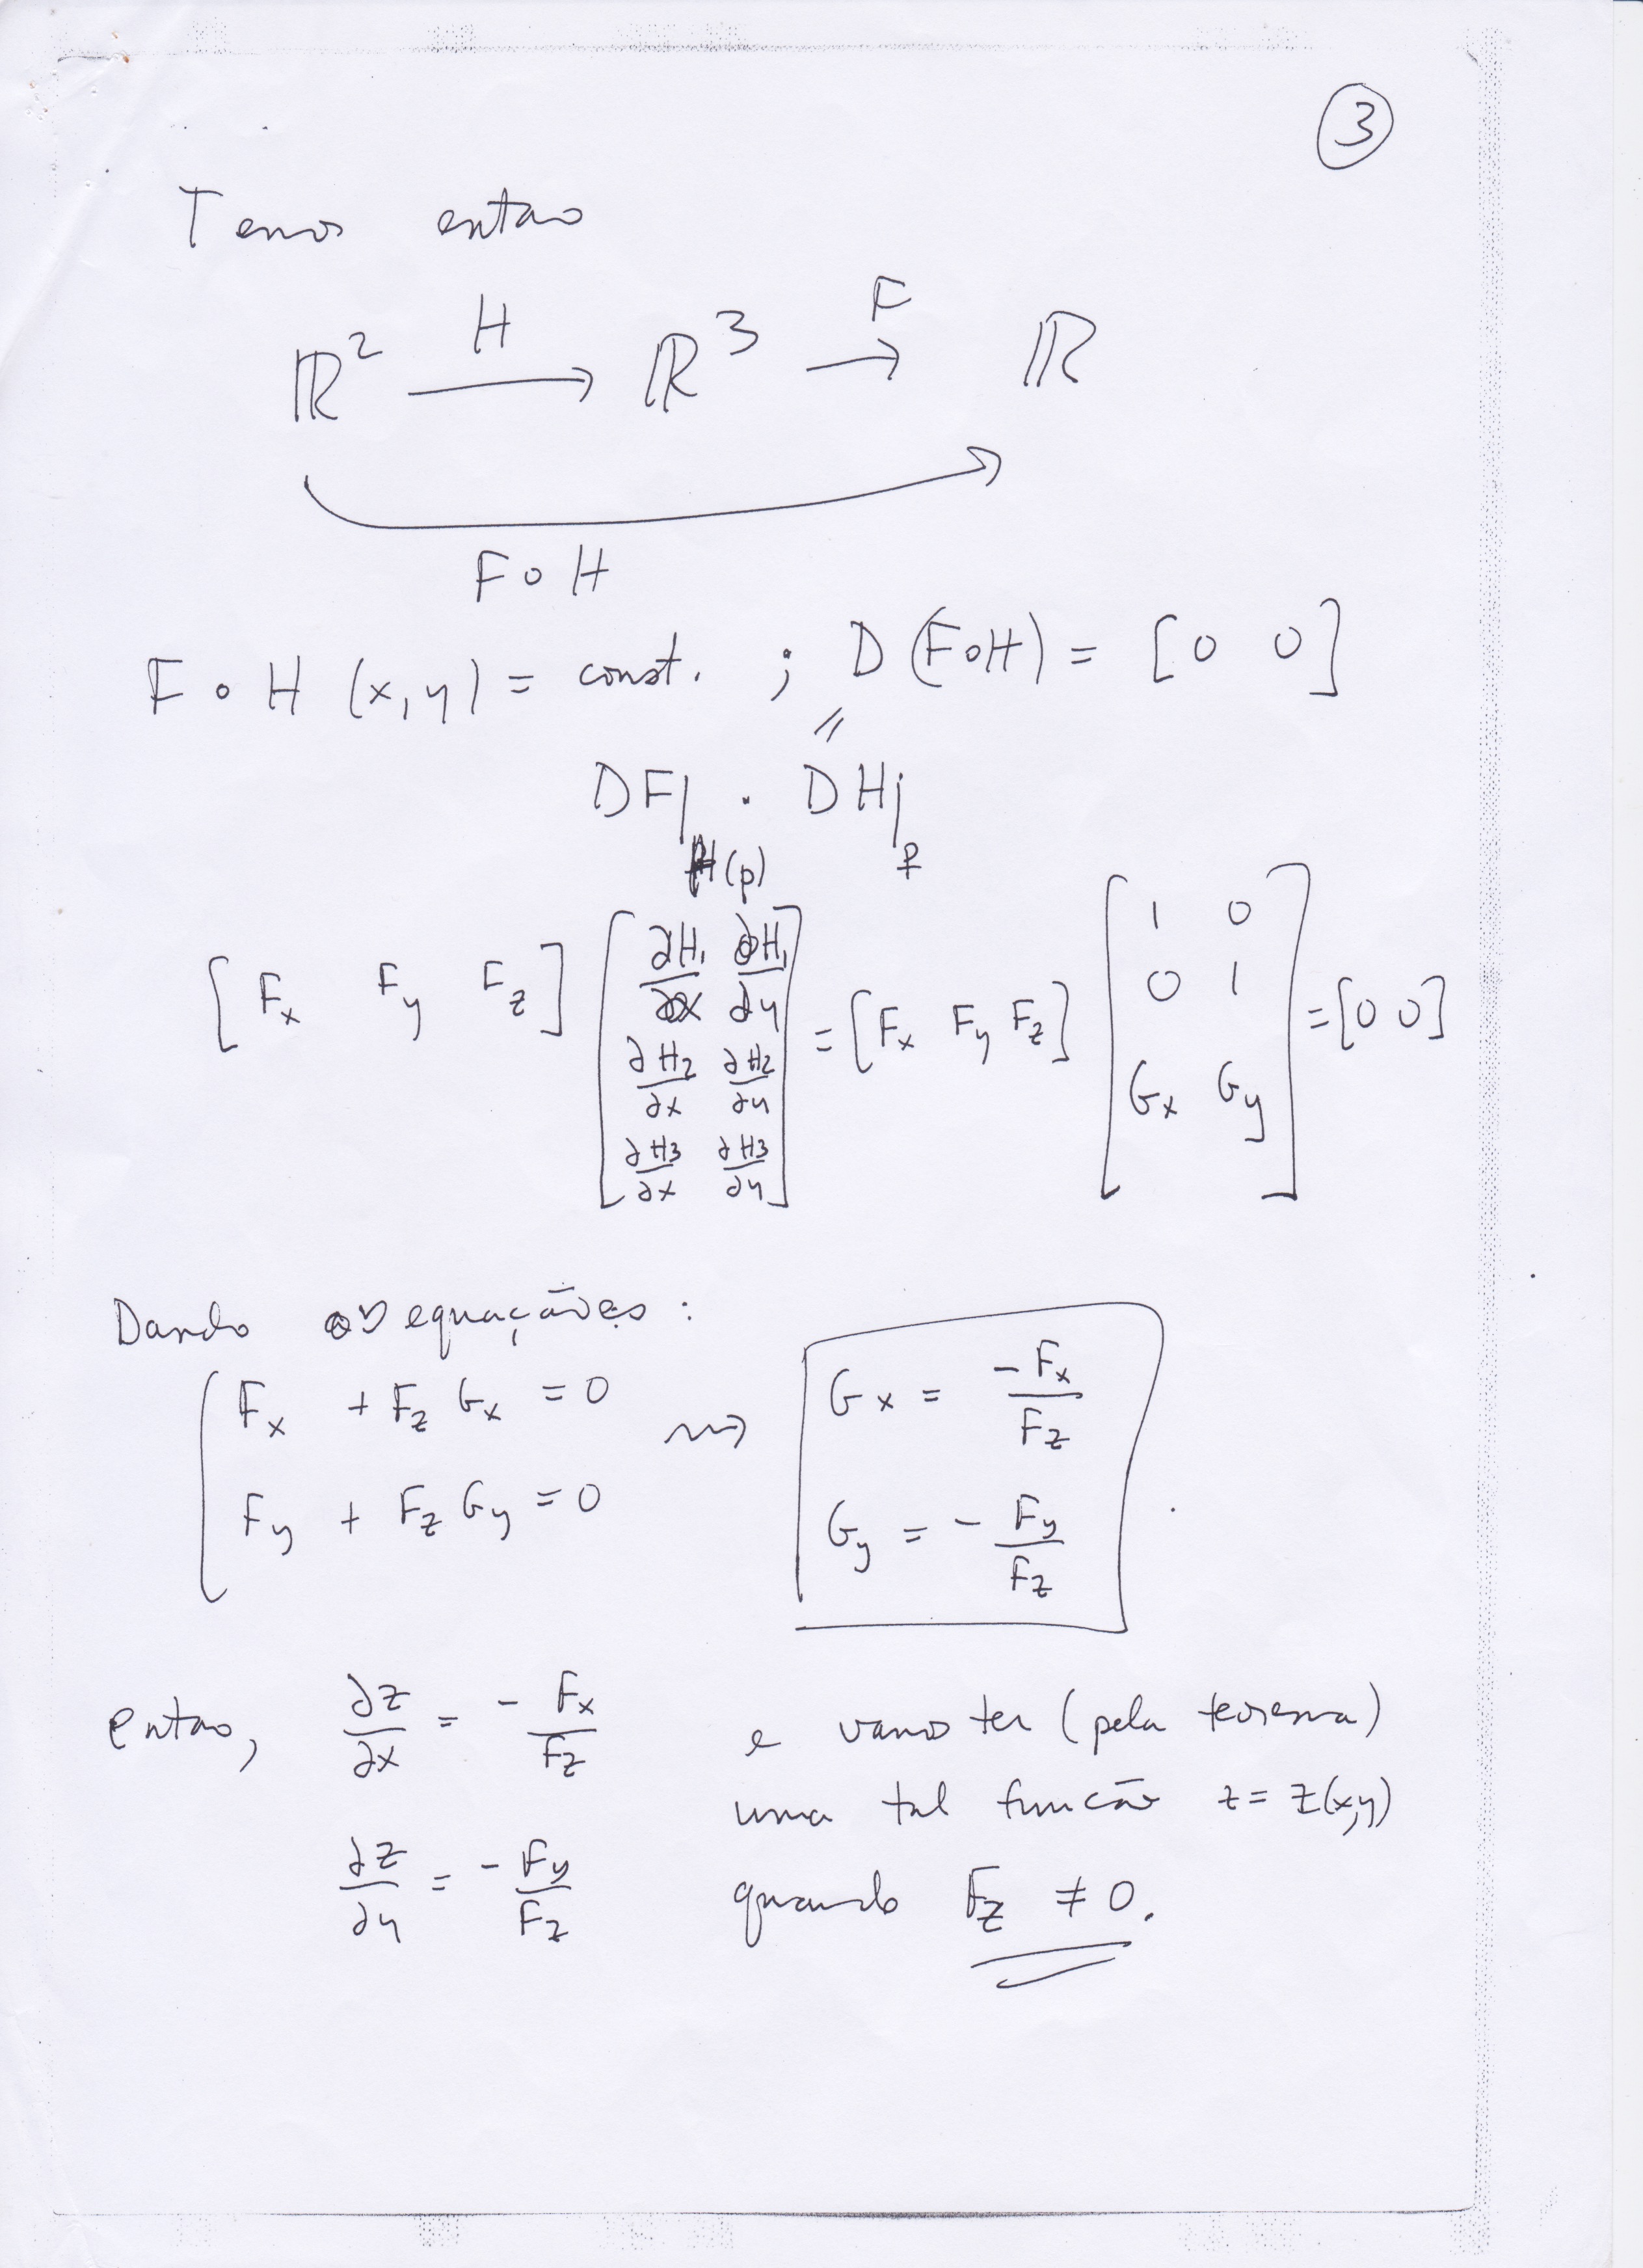 3
Temos então
ℝ² —H→ ℝ³ —F→ ℝ
F∘H
F∘H (x,y) = const. ; D(F∘H) = [0 0]
=
DF|H(p) · DH|p
[Fx Fy Fz] [∂H₁/∂x ∂H₁/∂y ; ∂H₂/∂x ∂H₂/∂y ; ∂H₃/∂x ∂H₃/∂y] = [Fx Fy Fz] [1 0 ; 0 1 ; Gx Gy] = [0 0]
Dando as equações:
Fx + Fz Gx = 0 ⇝ Gx = -Fx/Fz
Fy + Fz Gy = 0 Gy = -Fy/Fz
então, ∂z/∂x = -Fx/Fz e vamos ter (pela teorema)
uma tal função z = z(x,y)
∂z/∂y = -Fy/Fz quando Fz ≠ 0.